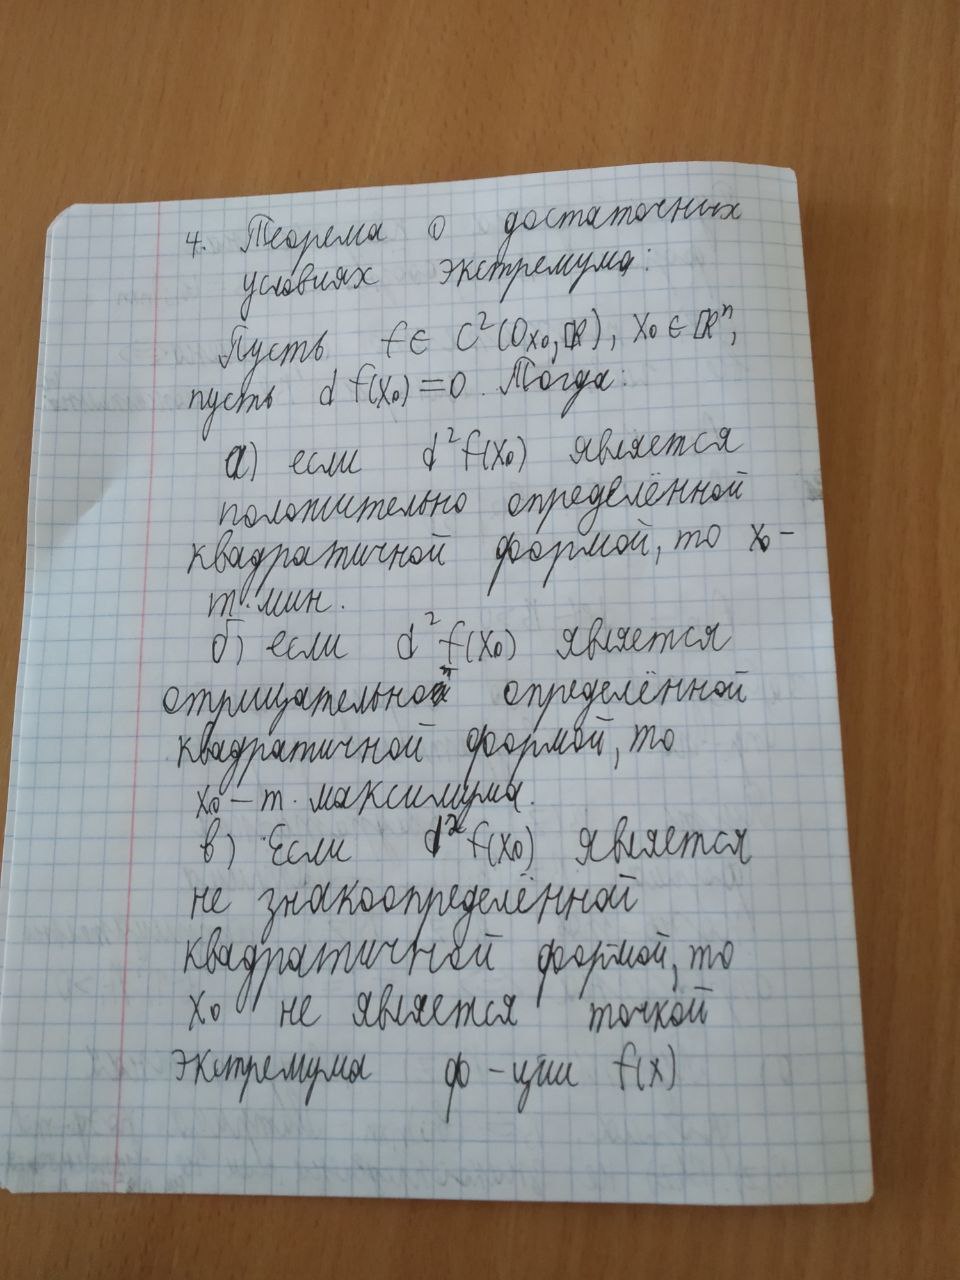 4. Теорема о достаточных
условиях экстремума:
Пусть f ∈ C²(Ox₀, ℝ), x₀ ∈ ℝⁿ,
пусть d f(x₀) = 0. Тогда:
а) если d² f(x₀) является
положительно определённой
квадратичной формой, то x₀ –
т. мин.
б) если d² f(x₀) является
отрицательной определённой
квадратичной формой, то
x₀ – т. максимума.
в) Если d² f(x₀) является
не знакоопределённой
квадратичной формой, то
x₀ не является точкой
экстремума ф-ции f(x)